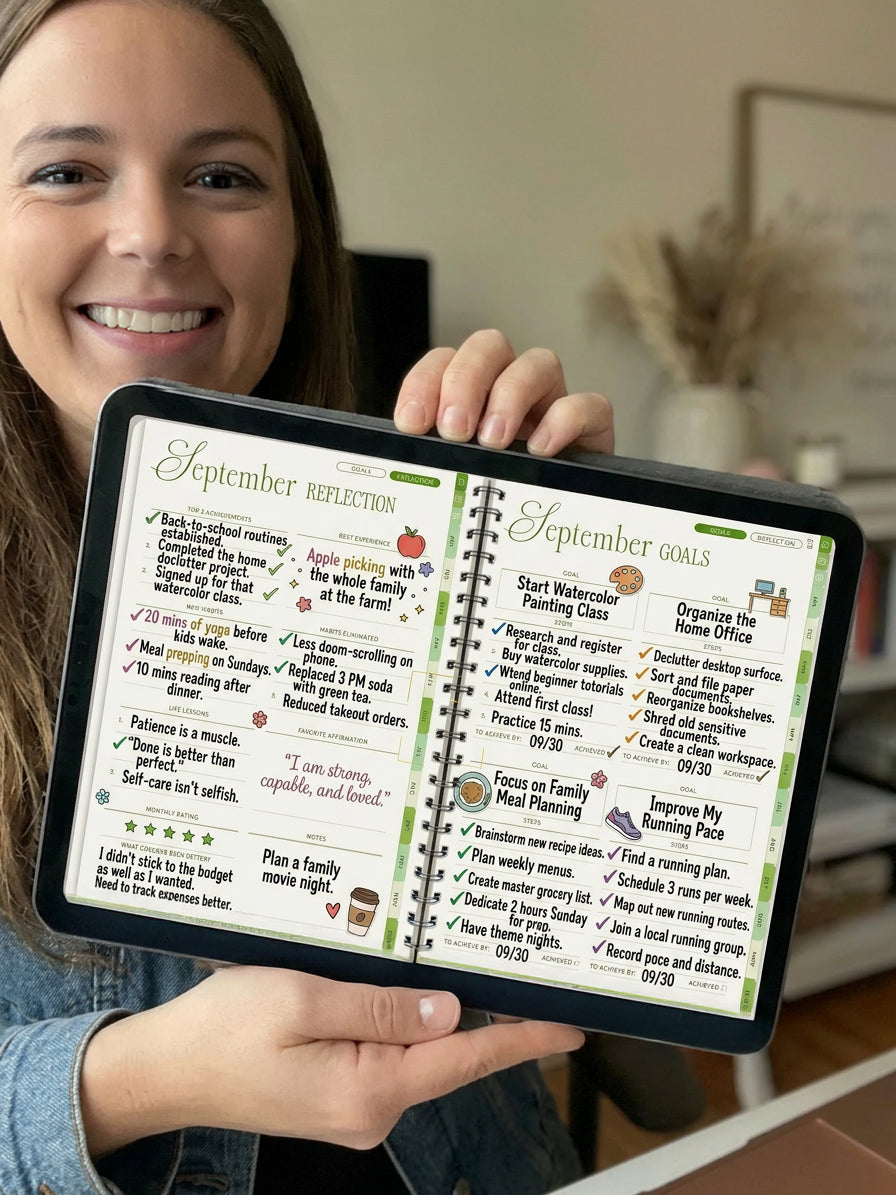 September REFLECTION
GOALS
REFLECTION
TOP 3 ACHIEVEMENTS
Back-to-school routines
established.
2. Completed the home
doclotter project.
Signed up for that
watercolor class.
BEST EXPERIENCE
Apple picking with
the whole family
at the farm!
20 mins of yoga before
kids wake.
Meal prepping on Sundays.
10 mins reading after
dinner.
HABITS ELIMINATED
Less doom-scrolling on
phone.
Replaced 3 PM soda
with green tea.
3. Reduced takeout orders.
LIFE LESSONS
1. Patience is a muscle.
"Done is better than
perfect."
3. Self-care isn't selfish.
FAVORITE AFFIRMATION
"I am strong,
capable, and loved."
MONTHLY RATING
I didn't stick to the budget
as well as I wanted.
Need to track expenses better.
NOTES
Plan a family
movie night.
September GOALS
REFLECTION
GOAL
Start Watercolor
Painting Class
Research and register
for class.
Buy watercolor supplies.
Wtend beginner totorials
online.
4. Attend first class!
5. Practice 15 mins.
TO ACHIEVE BY: 09/30 ACHIEVED
GOAL
Organize the
Home Office
STEPS
Declutter desktop surface.
Sort and file paper
documents.
Reorganize bookshelves.
Shred old sensitive
documents.
Create a clean workspace.
TO ACHIEVE BY: 09/30 ACHIEVED
GOAL
Focus on Family
Meal Planning
STEPS
Brainstorm new recipe ideas.
Plan weekly menus.
Create master grocery list.
Dedicate 2 hours Sunday
for prep.
Have theme nights.
TO ACHIEVE BY: 09/30
GOAL
Improve My
Running Pace
Find a running plan.
Schedule 3 runs per week.
Map out new running routes.
Join a local running group.
Record poce and distance.
TO ACHIEVE BY: 09/30 ACHIEVED